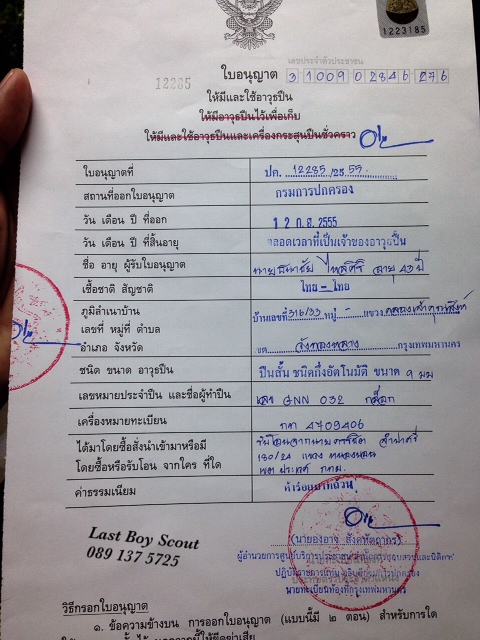 1223185
เลขประจำตัวประชาชน
12285
ใบอนุญาต 3 1009 02846 27 6
ให้มีและใช้อาวุธปืน
ให้มีอาวุธปืนไว้เพื่อเก็บ
ให้มีและใช้อาวุธปืนและเครื่องกระสุนปืนชั่วคราว
ใบอนุญาตที่ ปค. 12285 /25 55
สถานที่ออกใบอนุญาต กรมการปกครอง
วัน เดือน ปี ที่ออก 1 2 ก.ย. 2555
วัน เดือน ปี ที่สิ้นอายุ ตลอดเวลาที่เป็นเจ้าของอาวุธปืน
ชื่อ อายุ ผู้รับใบอนุญาต อายุ 43 ปี
เชื้อชาติ สัญชาติ ไทย - ไทย
ภูมิลำเนาบ้าน บ้านเลขที่ 316/33 หมู่ - แขวง คลองเจ้าคุณสิงห์
เลขที่ หมู่ที่ ตำบล
อำเภอ จังหวัด เขต วังทองหลาง กรุงเทพมหานคร
ชนิด ขนาด อาวุธปืน ปืนสั้น ชนิดกึ่งอัตโนมัติ ขนาด 9 มม
เลขหมายประจำปืน และชื่อผู้ทำปืน เลข GNN 032 กล็อก
เครื่องหมายทะเบียน กท 4709406
ได้มาโดยซื้อสั่งนำเข้ามาหรือมี รับโอนจากนาย
โดยซื้อหรือรับโอน จากใคร ที่ใด 180/24 แขวง หนองบอน
เขต ประเวศ กทม.
ค่าธรรมเนียม ห้าร้อยบาทถ้วน
Last Boy Scout
089 137 5725
ผู้อำนวยการศูนย์บริการประชาชน
นายทะเบียนท้องที่กรุงเทพมหานคร
วิธีกรอกใบอนุญาต
๑. ข้อความข้างบน การออกใบอนุญาต (แบบนี้มี ๒ ตอน) สำหรับการใด